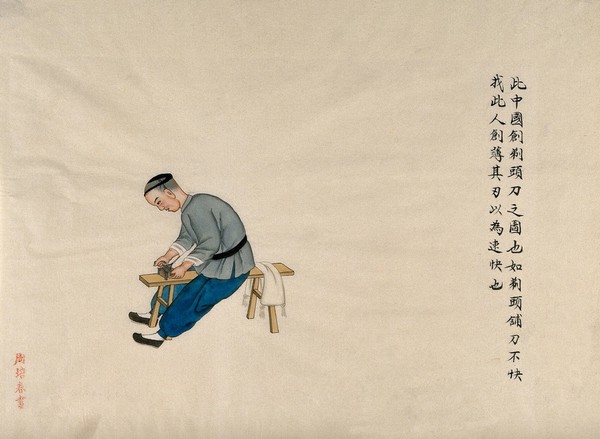 此中國創剃頭刀之圖也如剃頭舖刀不快
找此人創薄其刃以為速快也
周培春畫